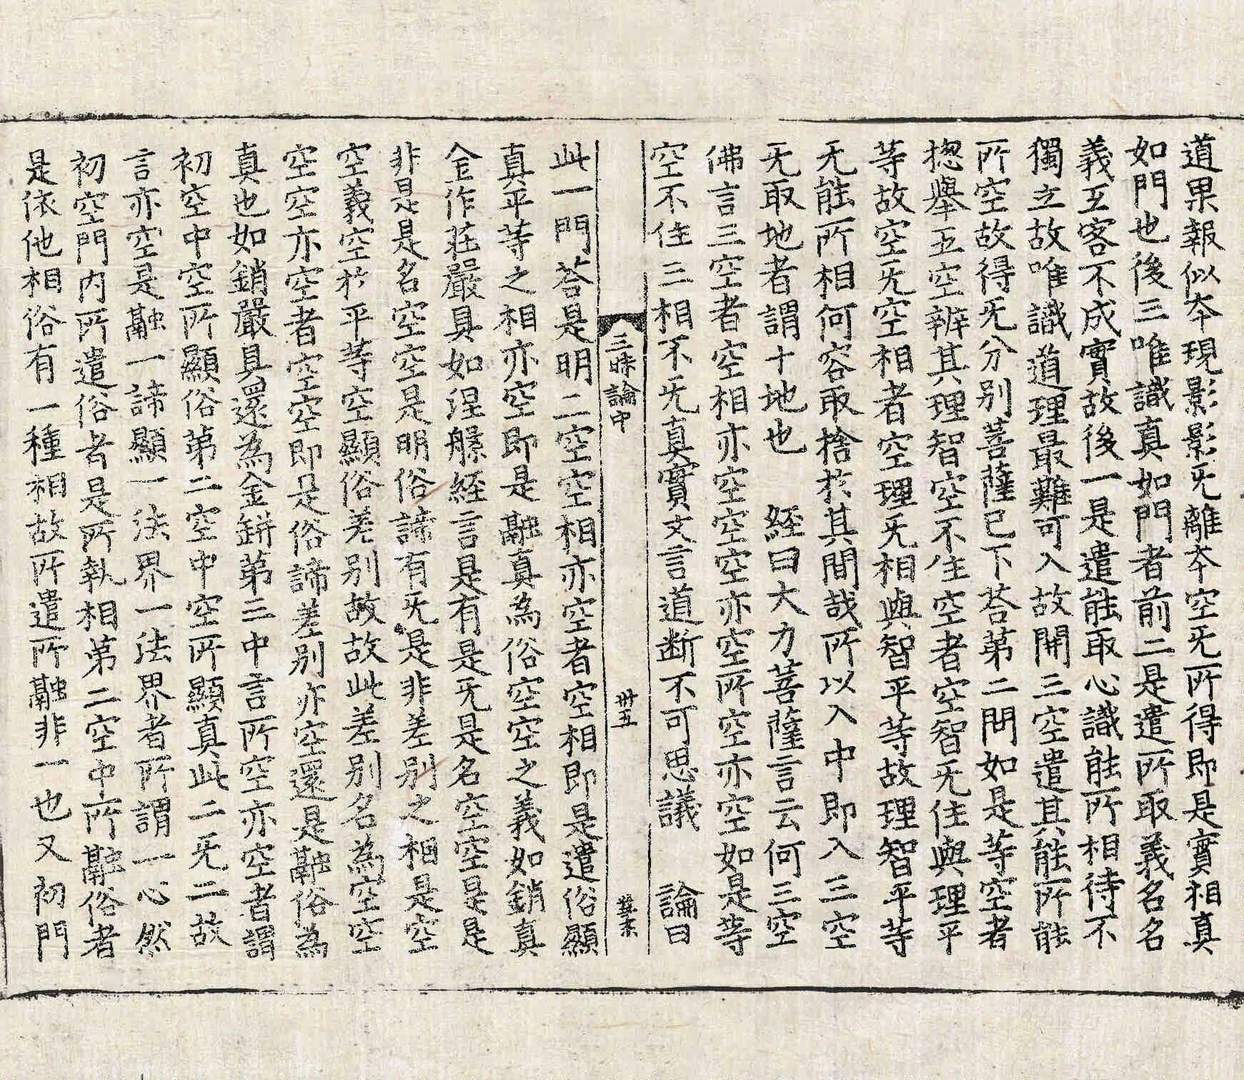 道果報似夲現影影旡離夲空旡所得即是實相真
如門也後三唯識真如門者前二是遣所取義名名
義互客不成實故後一是遣能取心識能所相待不
獨立故唯識道理最難可入故開三空遣其能所能
所空故得旡分别菩薩已下荅第二問如是等空者
揔舉五空辨其理智空不住空者空智旡住與理平
等故空旡空相者空理旡相與智平等故理智平等
旡能所相何容取捨於其間哉所以入中即入三空
旡取地者謂十地也 經曰大力菩薩言云何三空
佛言三空者空相亦空空空亦空所空亦空如是等
空不住三相不旡真實文言道断不可思議 論曰
三昧論中 卅五
此一門荅是明二空空相亦空者空相即是遣俗顯
真平等之相亦空即是融真為俗空空之義如銷真
金作莊嚴具如涅槃經言是有是旡是名空空是是
非是是名空空是明俗諦有旡是非差别之相是空
空義空於平等空顯俗差别故故此差别名為空空
空空亦空者空空即是俗諦差别亦空還是融俗為
真也如銷嚴具還為金缾第三中言所空亦空者謂
初空中空所顯俗第二空中空所顯真此二旡二故
言亦空是融一諦顯一法界一法界者所謂一心然
初空門内所遣俗者是所執相第二空中所融俗者
是依他相俗有一種相故所遣所融非一也又初門